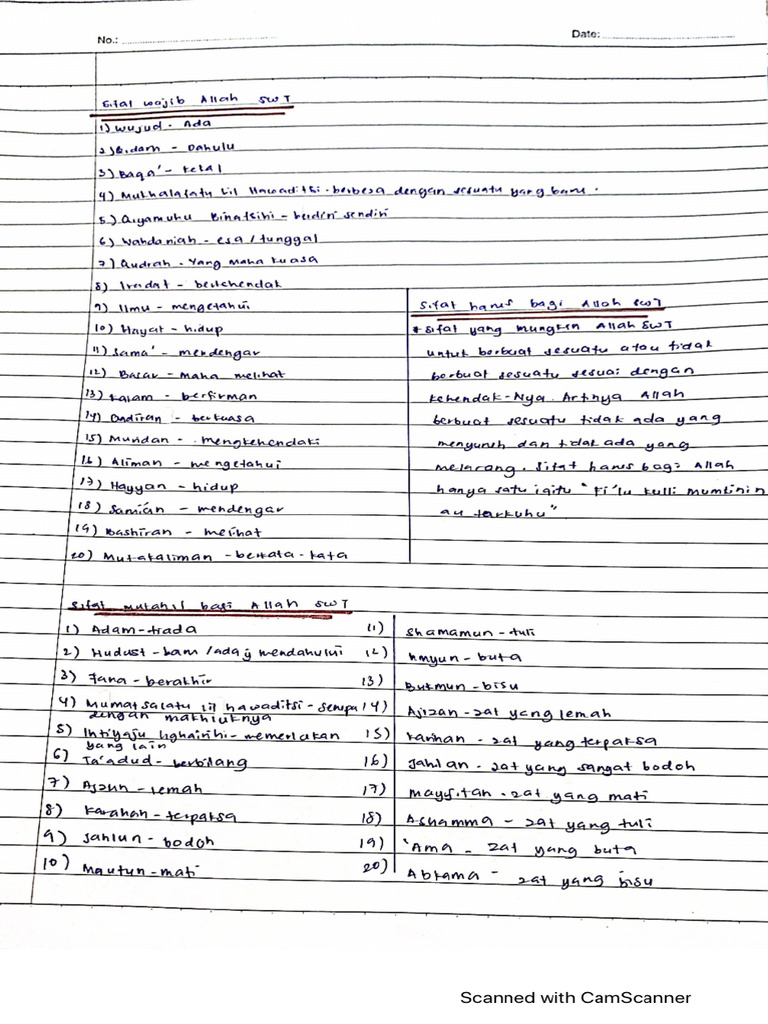 No.:
Date:
Sifat wajib Allah SWT
1) Wujud - Ada
2) Qidam - Dahulu
3) Baqa' - kekal
4) Mukhalafatu lil Hawaditsi - berbesa dengan sesuatu yang baru.
5) Qiyamuhu Binafsihi - berdiri sendiri
6) Wahdaniah - esa / tunggal
7) Qudrah - Yang Maha kuasa
8) Iradat - berkehendak
9) Ilmu - mengetahui
10) Hayat - hidup
11) Sama' - mendengar
12) Basar - maha melihat
13) Kalam - berfirman
14) Qadiran - berkuasa
15) Muridan - mengkehendaki
16) Aliman - mengetahui
17) Hayyan - hidup
18) Samian - mendengar
19) Bashiran - melihat
20) Mutakaliman - berkata - kata
Sifat harus bagi Allah SWT
* Sifat yang mungkin Allah SWT
untuk berbuat sesuatu atau tidak
berbuat sesuatu sesuai dengan
kehendak-Nya. Artinya Allah
berbuat sesuatu tidak ada yang
menyuruh dan tidak ada yang
melarang. Sifat harus bagi Allah
hanya satu iaitu "Fi'lu kulli mumkinin
au tarkuhu"
Sifat mutahil bagi Allah SWT
1) Adam - tiada
2) Hudust - baru / ada yg mendahului
3) Fana - berakhir
4) Mumatsalatu lil hawaditsi - serupa
dengan makhluknya
5) Ihtiyaju lighairihi - memerlukan
yang lain
6) Ta'adud - berbilang
7) Ajzun - lemah
8) Karahah - terpaksa
9) Jahlun - bodoh
10) Mautun - mati
11) Shamamun - tuli
12) Umyun - buta
13) Bukmun - bisu
14) Ajizan - zat yang lemah
15) Karihan - zat yang terpaksa
16) Jahlan - zat yang sangat bodoh
17) Mayyitan - zat yang mati
18) Ashamma - zat yang tuli
19) 'Ama - zat yang buta
20) Abkama - zat yang bisu
Scanned with CamScanner